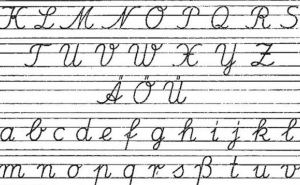 K L M N O P Q R S
T U V W X Y Z
Ä Ö Ü
a b c d e f g h i j k l
m n o p q r s ß t u v